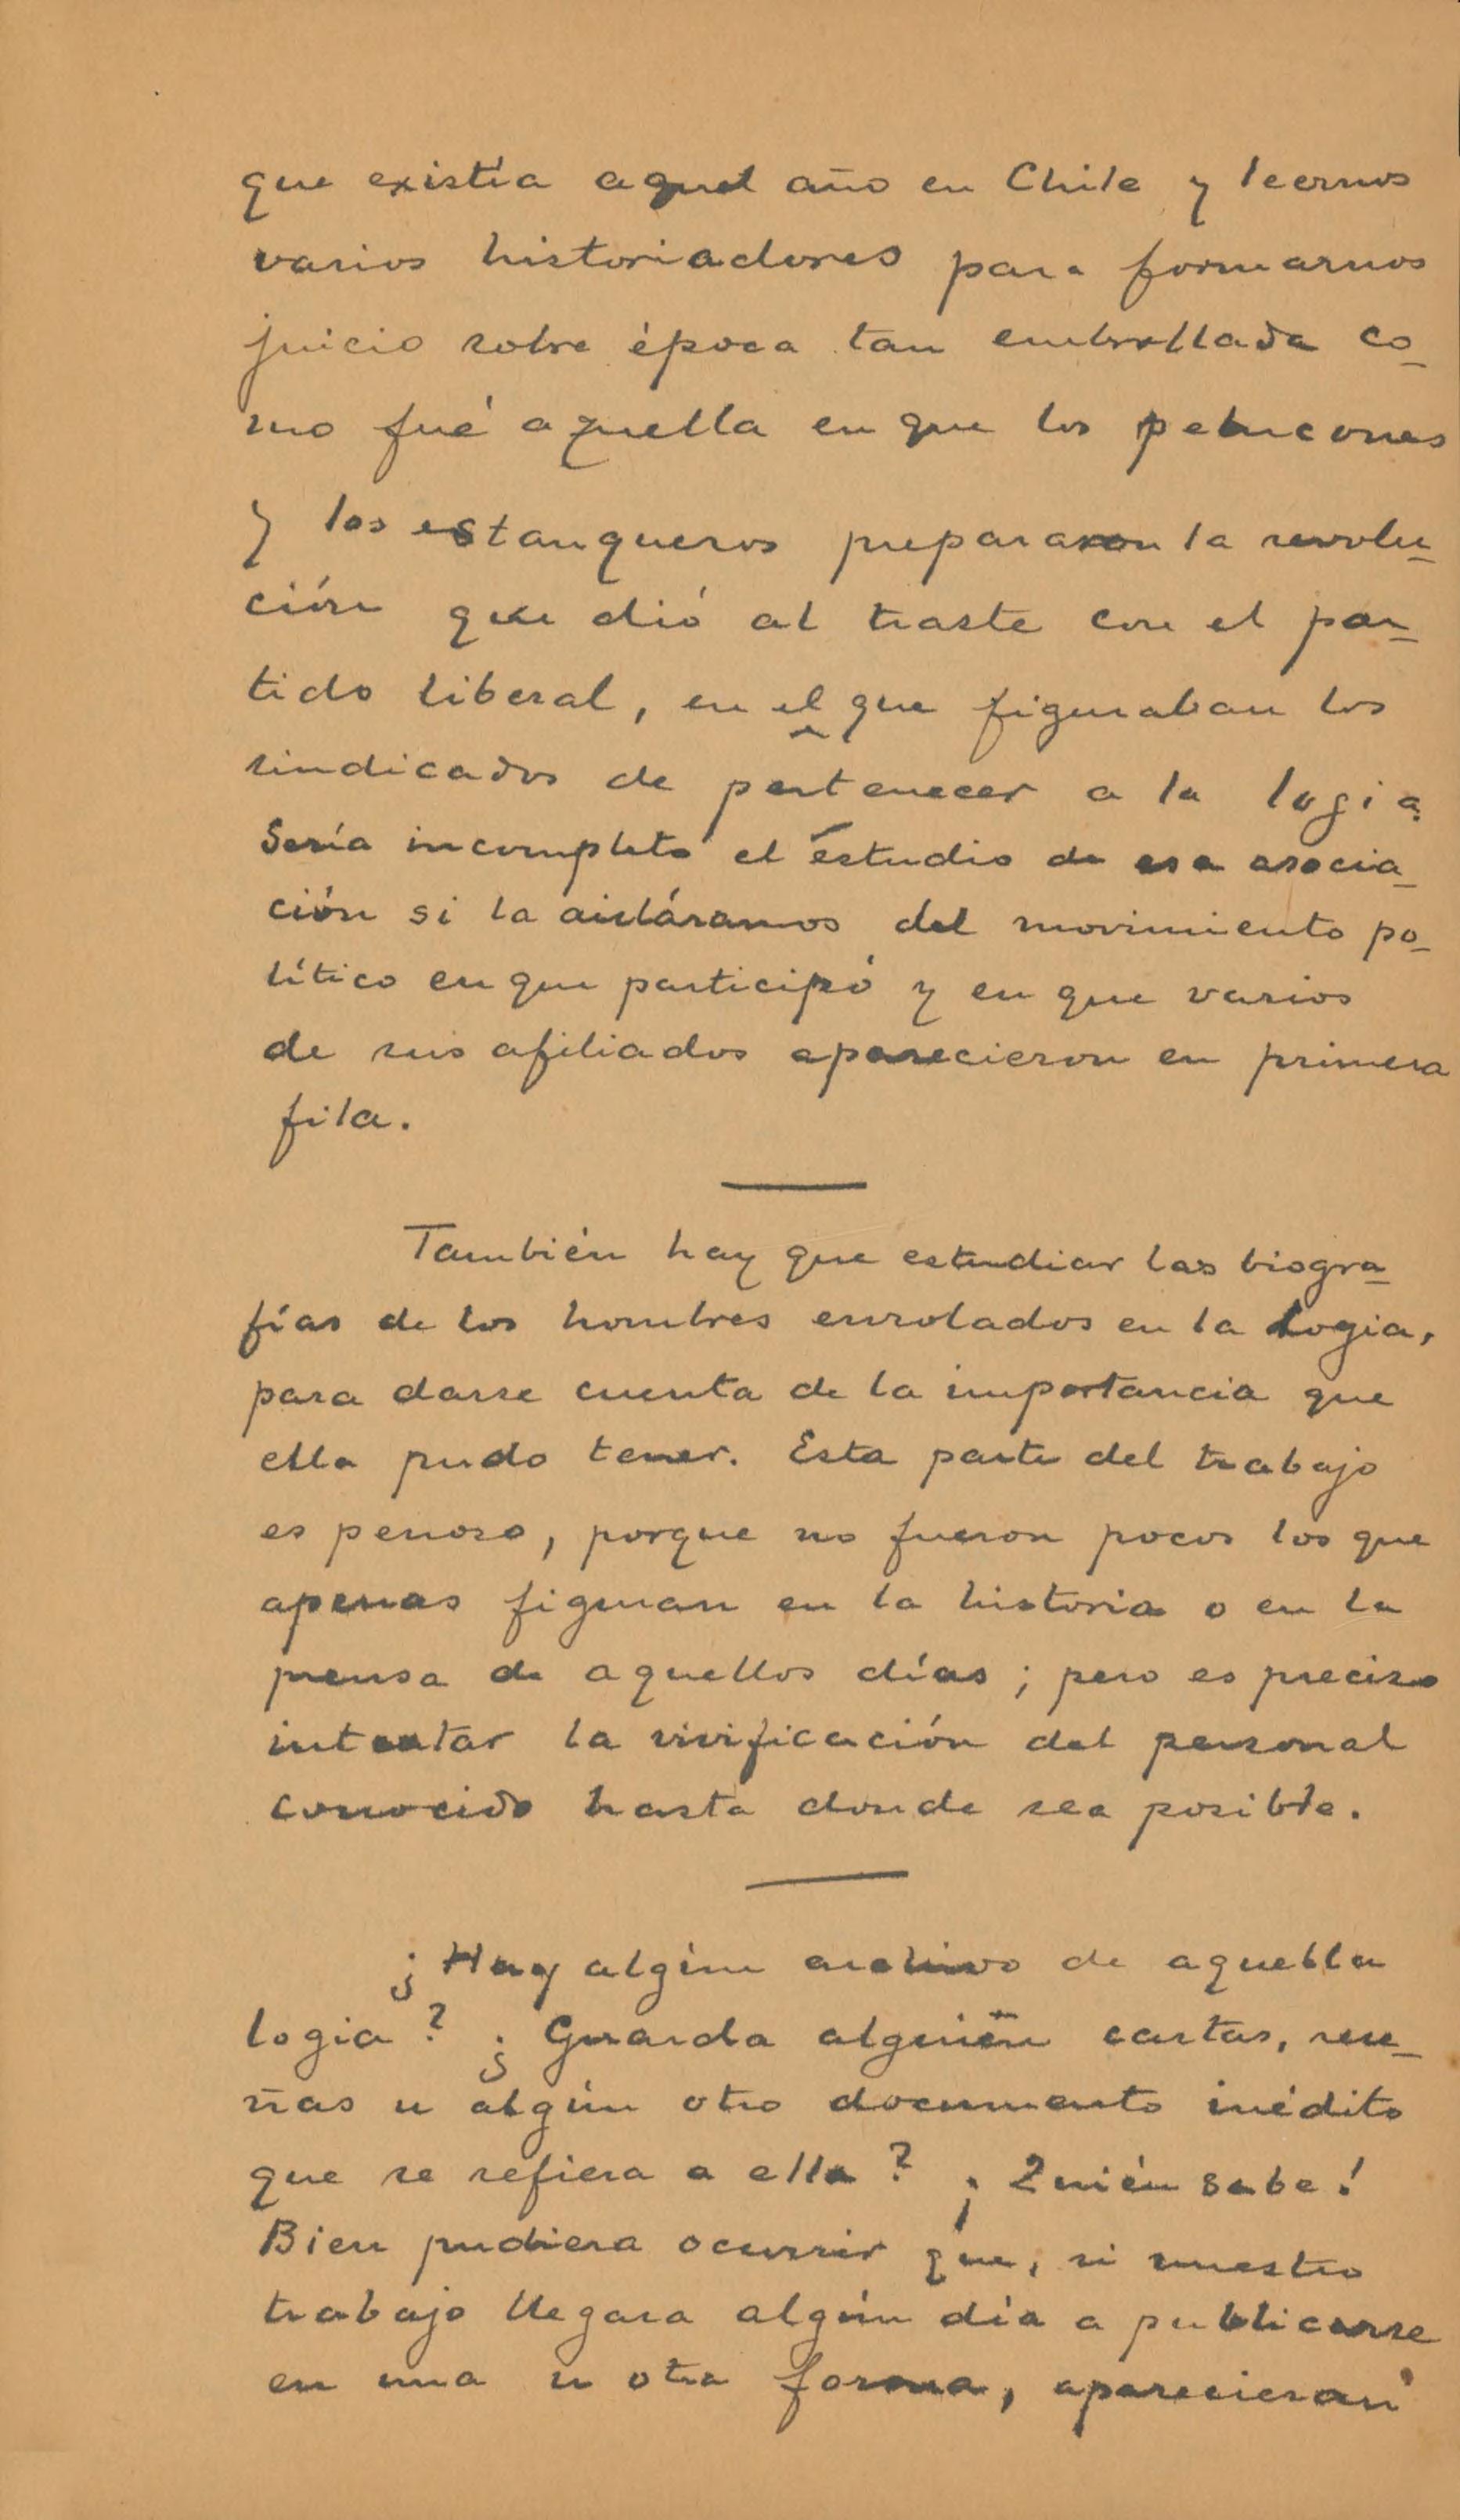 que existía aquel año en Chile y leernos
varios historiadores para formarnos
juicio sobre época tan embrollada co-
mo fué aquella en que los pelucones
y los estanqueros prepararon la revolu-
ción que dió al traste con el par-
tido liberal, en el que figuraban los
sindicados de pertenecer a la logia.
Sería incompleto el estudio de esa asocia-
ción si la aisláramos del movimiento po-
lítico en que participó y en que varios
de sus afiliados aparecieron en primera
fila.
También hay que estudiar las biogra-
fías de los hombres enrolados en la Logia,
para darse cuenta de la importancia que
ella pudo tener. Esta parte del trabajo
es penoso, porque no fueron pocos los que
apenas figuran en la historia o en la
prensa de aquellos días; pero es preciso
intentar la vivificación del personal
conocido hasta donde sea posible.
¿Hay algún archivo de aquella
logia? ¿Guarda alguién cartas, rese-
ñas u algún otro documento inédito
que se refiera a ella? ¡Quién sabe!
Bien pudiera ocurrir que, si nuestro
trabajo llegara algún día a publicarse
en una u otra forma, aparecieran